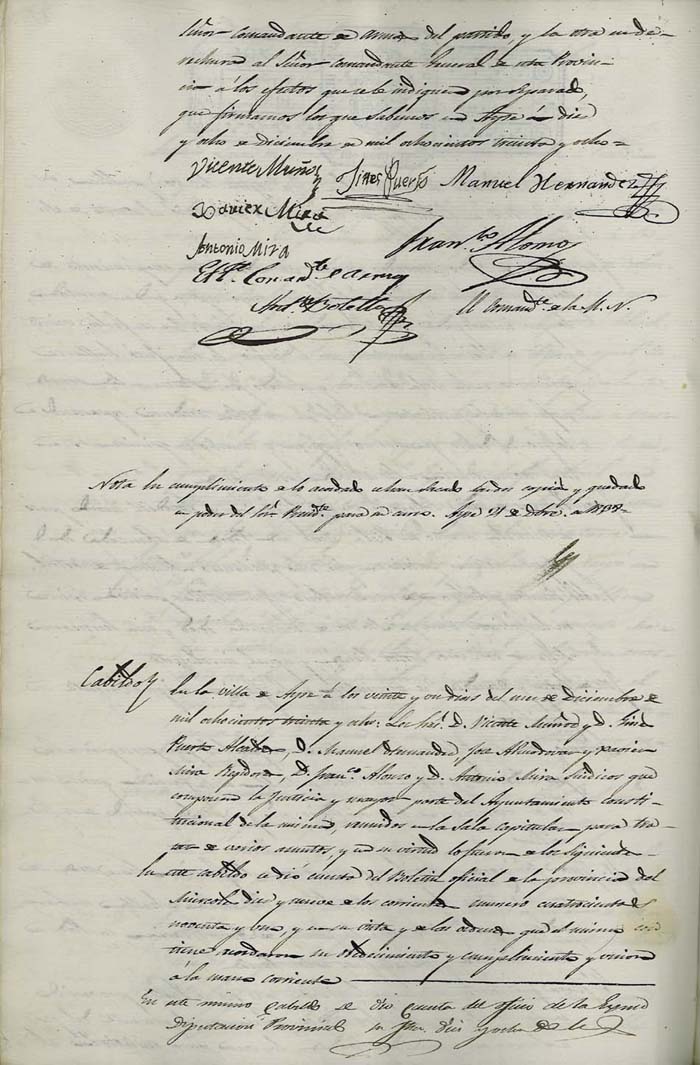 Señor Comandante de armas del partido y la otra en de-
rechura al Señor Comandante General de esta Provin-
cia á los efectos que se le indiquen por separado,
que firmamos los que Sabemos en Aspe á diez
y ocho de Diciembre de mil ochocientos treinta y ocho=
Vicente Muñoz Jines Puerto Manuel Hernandez
Xavier Mira
Antonio Mira Fran.co Alonso
El Comand.te de armas
Botella El Comand.te de la M. N.
Nota En cumplimiento de lo acordado se han sacado las dos copias y quedado
en poder del Sor. Presid.te para su curso. Aspe 21 de Dbre. de 1838=
Cabildo En la villa de Aspe á los veinte y un dias del mes de Diciembre de
mil ochocientos treinta y ocho: Los Sres. D. Vicente Muñoz y D. Gines
Puerto Alcaldes, D. Manuel Hernandez, José Almodovar y Xavier
Mira Regidores, D. Fran.co Alonso y D. Antonio Mira Sindicos que
componen la Justicia y mayor parte del Ayuntamiento consti-
tucional de la misma, reunidos en la Sala capitular para tra-
tar de varios asuntos, y en su virtud lo fueron de los siguientes
En este cabildo se dió cuenta del Boletin oficial de la provincia del
Miercoles diez y nueve de los corrientes numero cuatrocientos
noventa y uno, y en su vista y de las ordenes que el mismo con
tiene acordaron su obedecimiento y cumplimiento y union
á la mano corriente
En este mismo Cabildo se dio cuenta del oficio de la Exma
Diputacion Provincial su fha. diez y ocho de